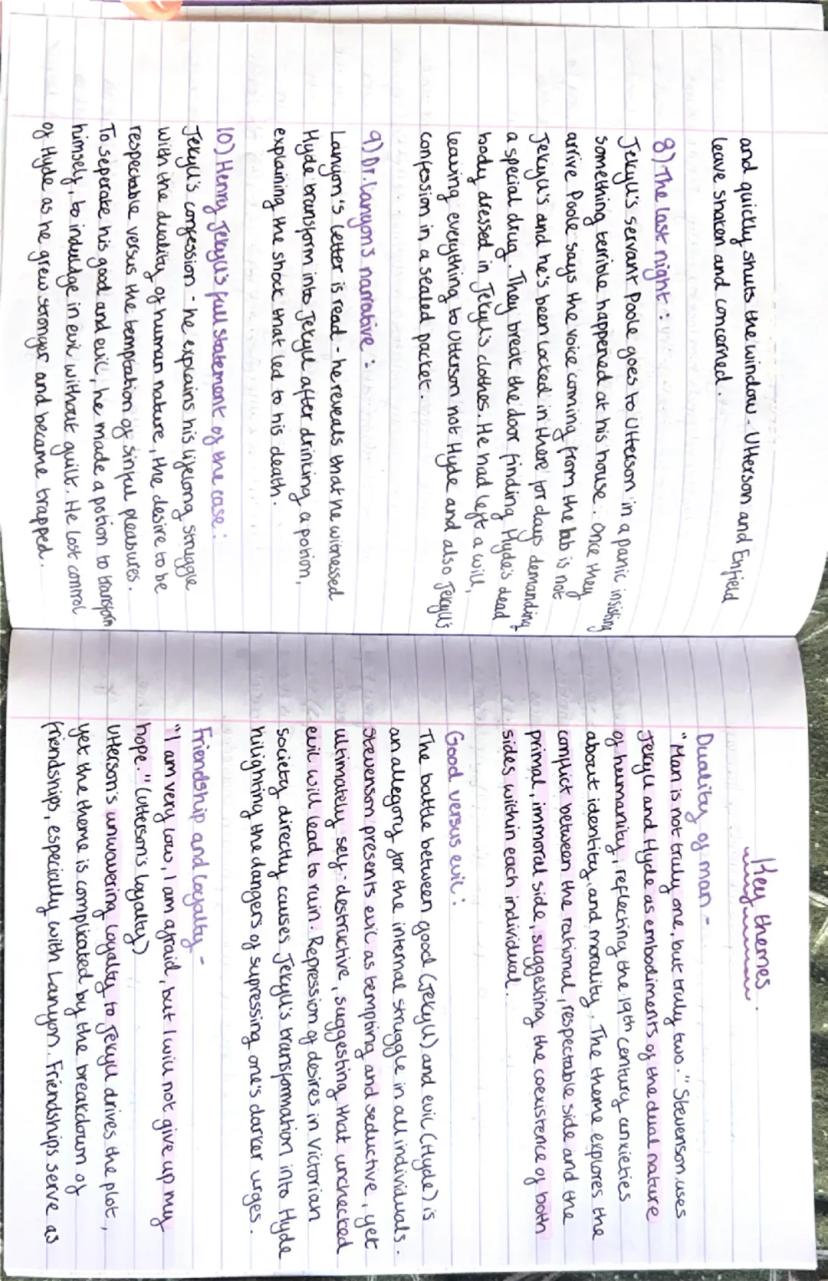 and quickly shuts the window - Utterson and Enfield
leave shaken and concerned.
8) The last night :
Jekyll's servant Poole goes to Utterson in a panic insisting
something terrible happened at his house. Once they
arrive Poole says the voice coming from the lab is not
Jekyll's and he's been locked in there for days demanding
a special drug. They break the door finding Hyde's dead
body dressed in Jekyll's clothes. He had left a will,
leaving everything to Utterson not Hyde and also Jekyll's
confession in a sealed packet.
9) Dr. Lanyon's narrative :
Lanyon's letter is read - he reveals that he witnessed
Hyde transform into Jekyll after drinking a potion,
explaining the shock that led to his death.
10) Henry Jekyll's full statement of the case :
Jekyll's confession - he explains his lifelong struggle
with the duality of human nature, the desire to be
respectable versus the temptation of sinful pleasures.
To seperate his good and evil, he made a potion to transform
himself, to indulge in evil without guilt. He lost control
of Hyde as he grew stronger and became trapped.
Key themes.
Duality of man -
"Man is not truly one, but truly two." Stevenson uses
Jekyll and Hyde as embodiments of the dual nature
of humanity, reflecting the 19th century anxieties
about identity and morality. The theme explores the
conflict between the rational, respectable side and the
primal, immoral side, suggesting the coexistence of both
sides within each individual.
Good versus evil :
The battle between good (Jekyll) and evil (Hyde) is
an allegory for the internal struggle in all individuals.
Stevenson presents evil as tempting and seductive, yet
ultimately self-destructive, suggesting that unchecked
evil will lead to ruin. Repression of desires in Victorian
society directly causes Jekyll's transformation into Hyde
hilighting the dangers of supressing one's darker urges.
Friendship and loyalty -
"I am very low, I am afraid, but I will not give up my
hope." (Utterson's loyalty)
Utterson's unwavering loyalty to Jekyll drives the plot,
yet the theme is complicated by the breakdown of
friendships, especially with Lanyon. Friendships serve as